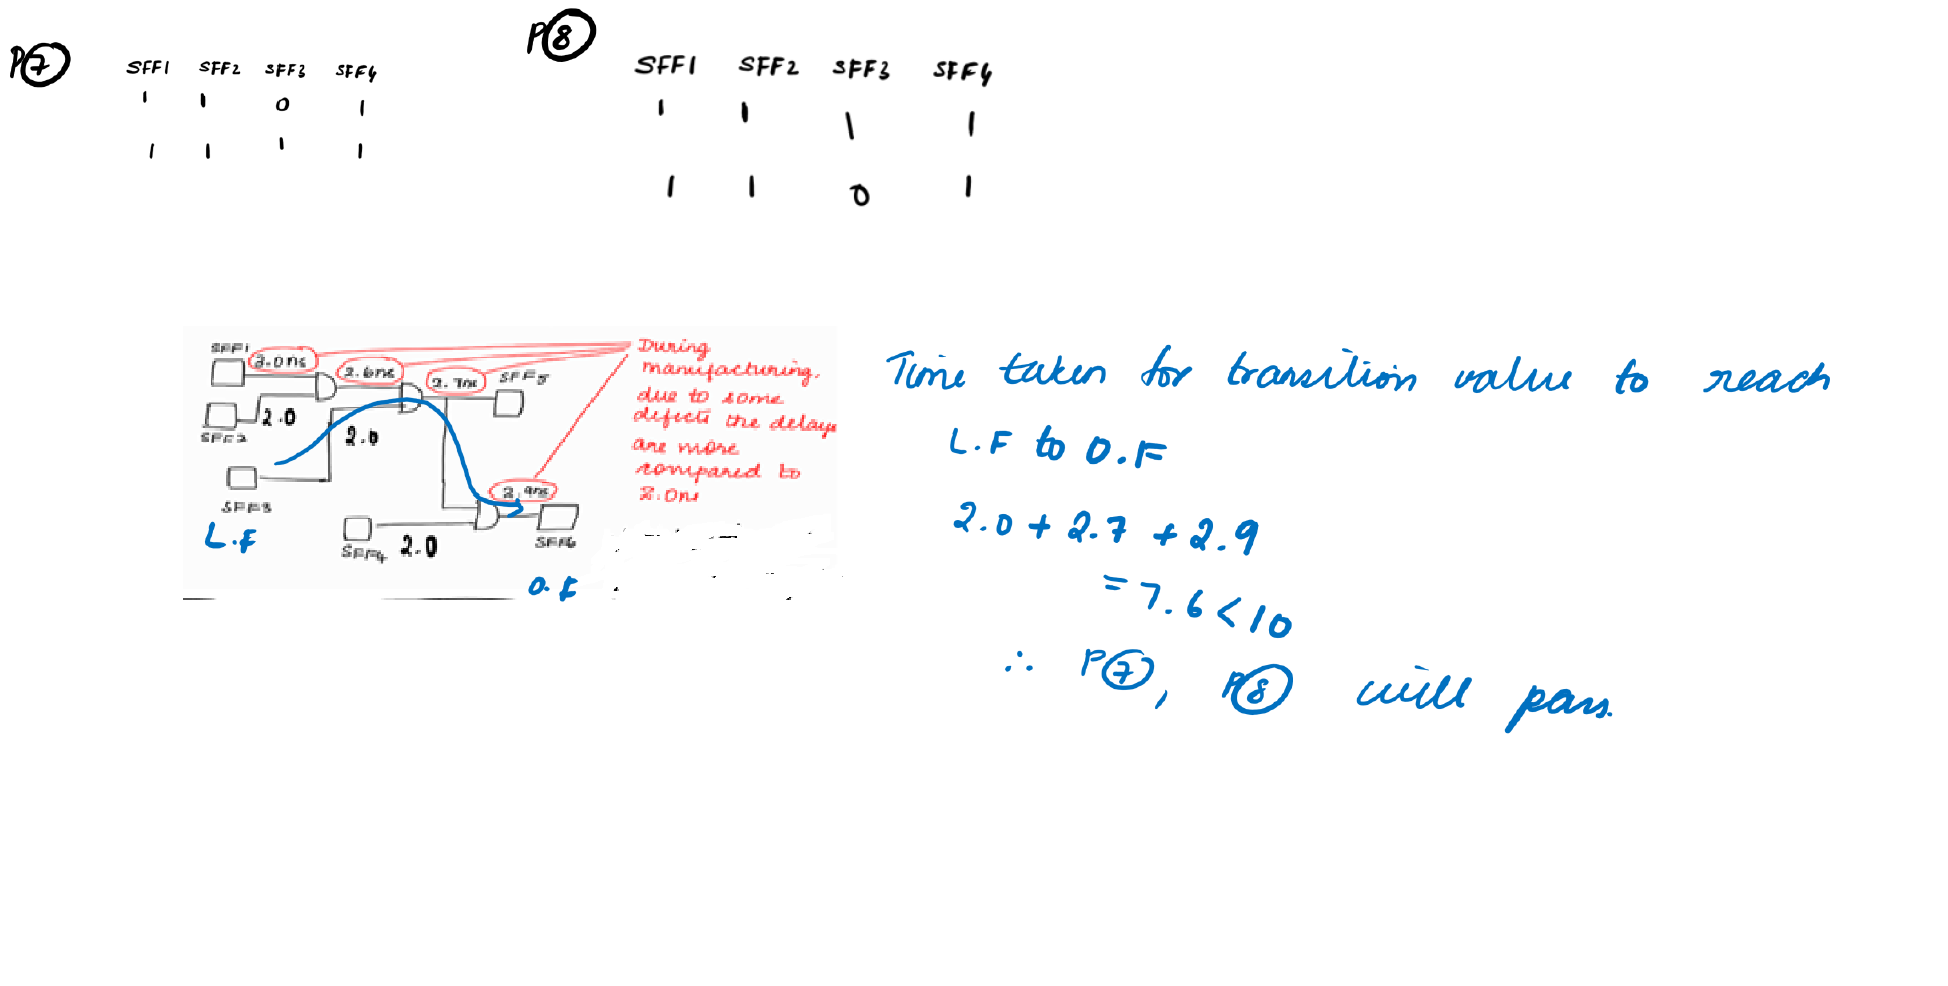 P⑦
SFF1 SFF2 SFF3 SFF4
1 1 0 1
1 1 1 1
P⑧
SFF1 SFF2 SFF3 SFF4
1 1 1 1
1 1 0 1
SFF1
3.0ns
2.6ns
2.7ns
SFF5
2.0
SFF2
2.0
SFF3
L.F
SFF4
2.0
2.9ns
SFF6
O.F
During
manufacturing,
due to some
defects the delays
are more
compared to
2.0ns
Time taken for transition value to reach
L.F to O.F
2.0 + 2.7 + 2.9
= 7.6 < 10
∴ P⑦, P⑧ will pass.